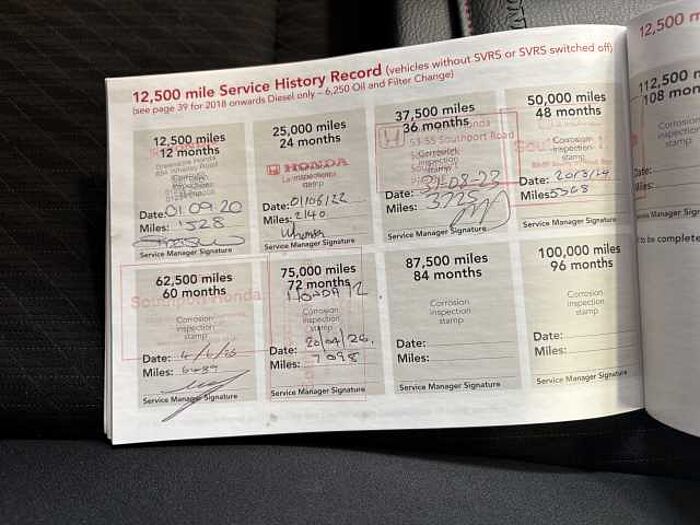 12,500 mile Service History Record (vehicles without SVRS or SVRS switched off)
(see page 39 for 2018 onwards Diesel only – 6,250 Oil and Filter Change)
12,500 miles
12 months
Corrosion
inspection
stamp
Date: 01.09.20
Miles: 1528
Service Manager Signature
25,000 miles
24 months
HONDA
inspection
stamp
Date: 01/06/22
Miles: 2140
Service Manager Signature
37,500 miles
36 months
53-55 Southport Road
Corrosion
inspection
stamp
Date: 08-23
Miles: 3725
Service Manager Signature
50,000 miles
48 months
Corrosion
inspection
stamp
Date: 20/3/24
Miles: 5568
Service Manager Signature
62,500 miles
60 months
Southport Honda
Corrosion
inspection
stamp
Date: 4/6/25
Miles: 6489
Service Manager Signature
75,000 miles
72 months
HONDA
Corrosion
inspection
stamp
Date: 20/04/26.
Miles: 7098
Service Manager Signature
87,500 miles
84 months
Corrosion
inspection
stamp
Date:
Miles:
Service Manager Signature
100,000 miles
96 months
Corrosion
inspection
stamp
Date:
Miles:
Service Manager Signature
12,500 m
112,500
108 mon
Corrosion
inspection
stamp
Date:
Miles:
Service Manager Signa
to be complete